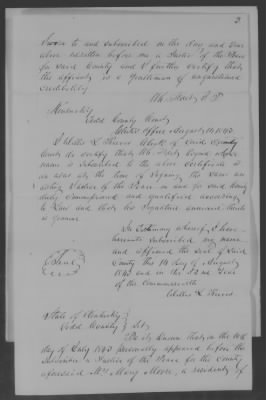 3
Sworn to and Subscribed on the day and Year
above written before me a Justice of the Peace
for said County and I further Certify that
the affiant is a Gentleman of unquestioned
Credibility
J. P.
Kentucky
Todd County County
Clerks Office August 14 1843
I Willis L Reeves Clerk of said County
Court do certify that
name is Subscribed to the above Certificate is
an was at the time of signing the same an
acting Justice of the Peace in and for said County
duly Commissioned and qualified according
to Law and that his Signature annexed thereto
is genuine
In Testimony whereof I have
hereunto subscribed my name
and affixed the Seal of said
County this 14 day of August
1843 and in the 52nd Year
of the Commonwealth
Seal
Willis L Reeves
State of Kentucky
Todd County Sct.
Be it Known that on the
day of July 1843 personally appeared before the
Subscriber a Justice of the Peace for the County
aforesaid Mrs Mary Moore, a resident of